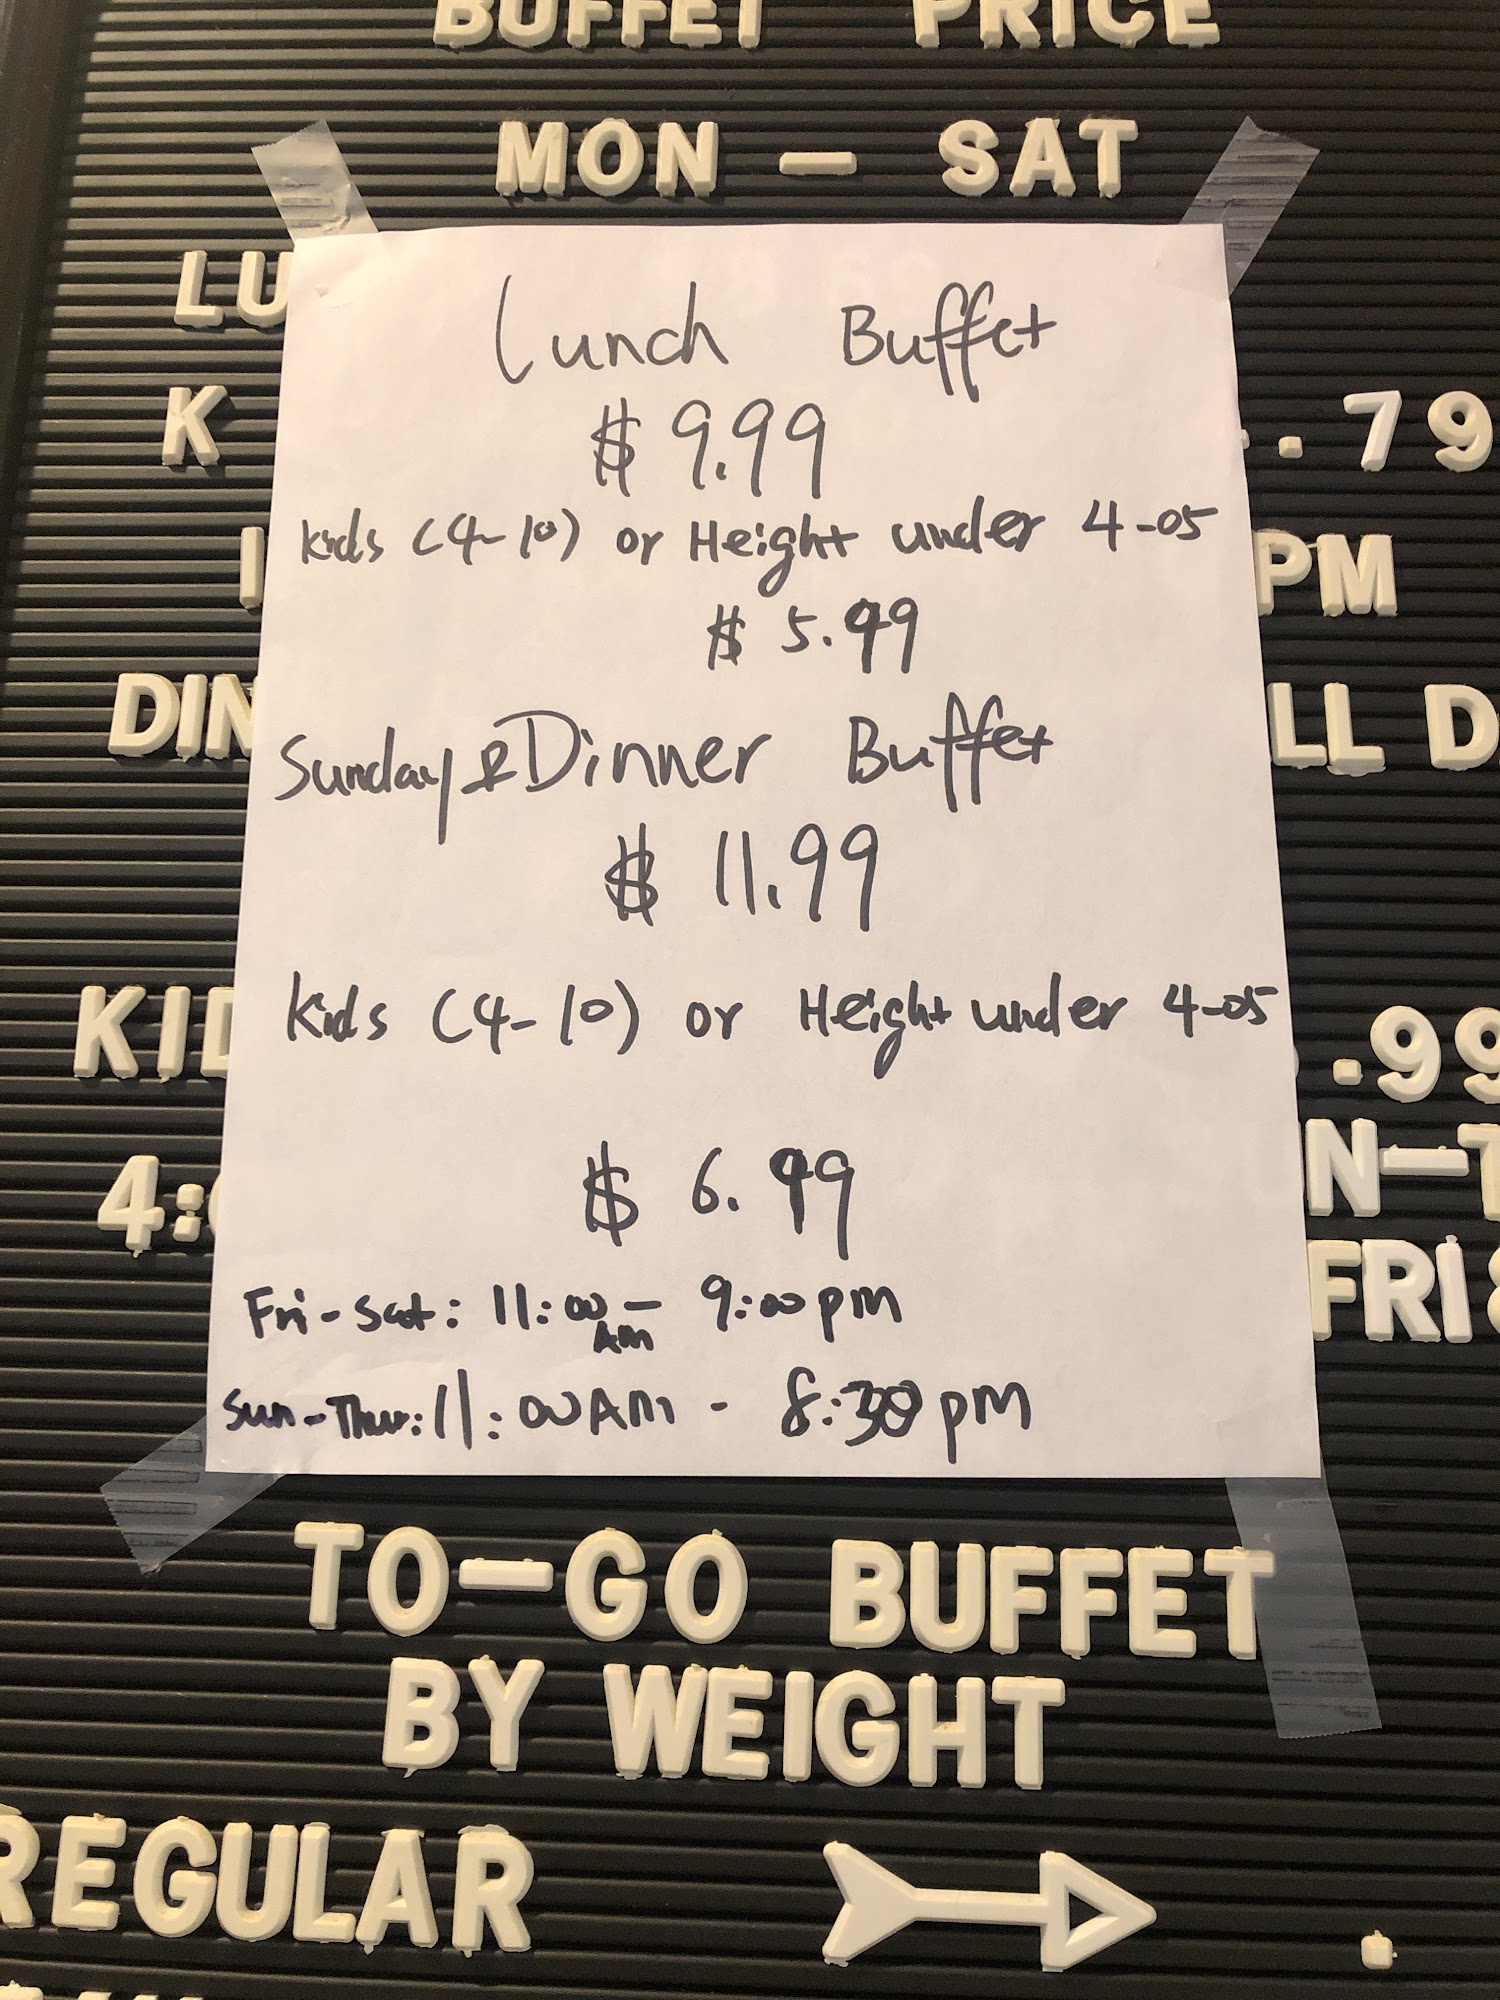 BUFFET PRICE
MON - SAT
LU
Lunch Buffet
$ 9.99
K .79
Kids (4-10) or Height under 4-05
PM
$ 5.99
DIN LL D
Sunday & Dinner Buffet
$ 11.99
Kids (4-10) or Height under 4-05
KID .99
$ 6.99
4: N-T
Fri-Sat: 11:00 AM - 9:00 pm
FRI &
Sun-Thur: 11:00 AM - 8:30 pm
TO-GO BUFFET
BY WEIGHT
REGULAR